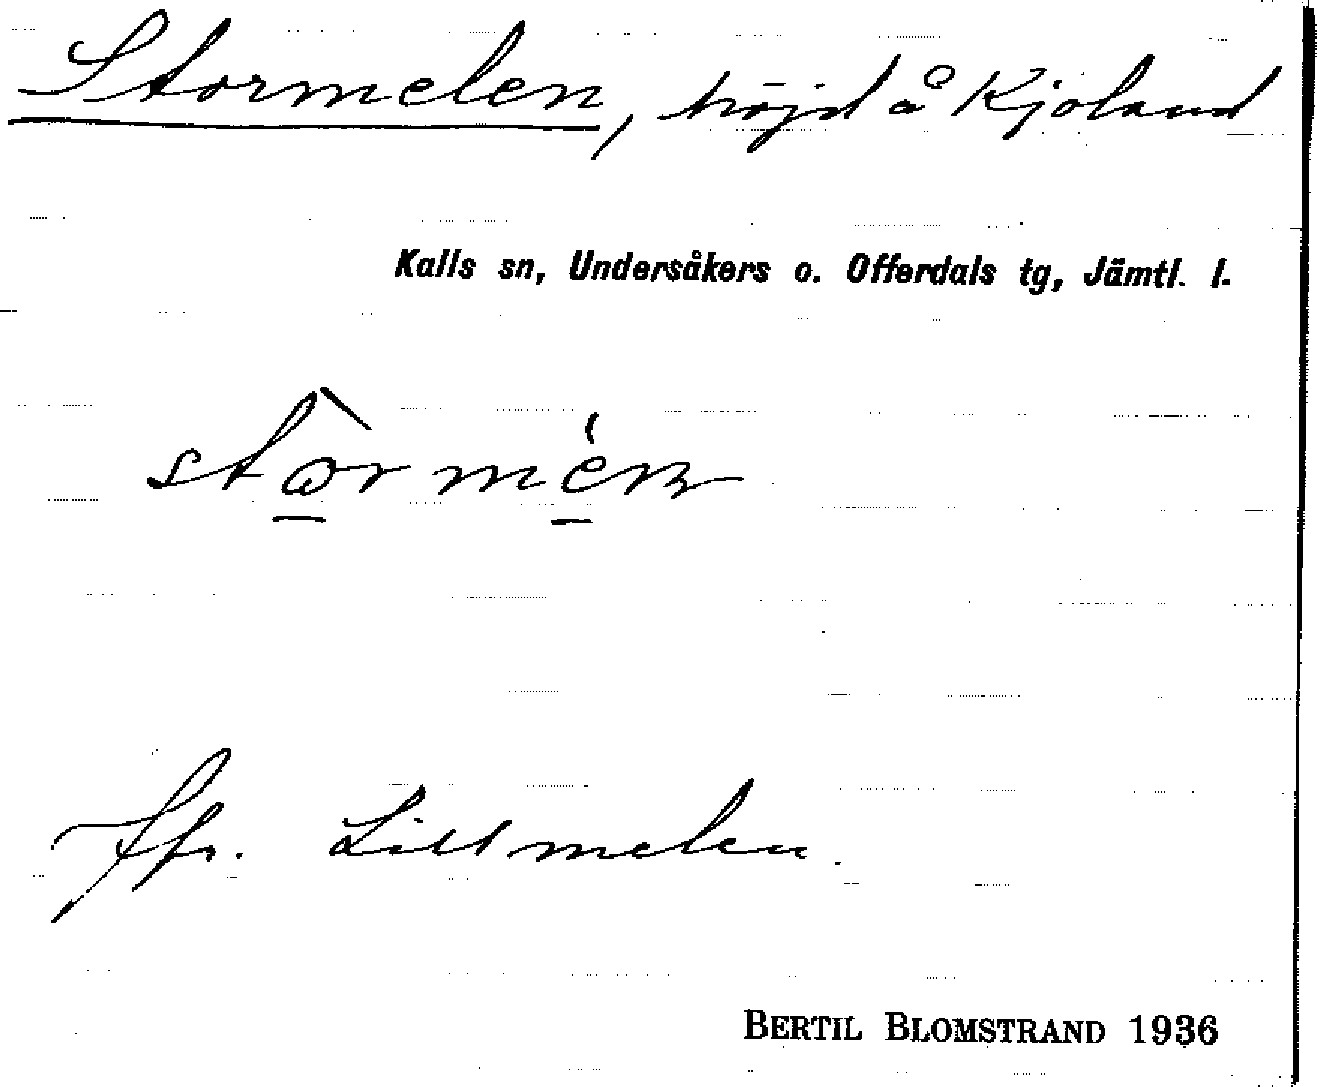 Stormelen, höjd å Kjoland
Kalls sn, Undersåkers o. Offerdals tg, Jämtl. l.
Jfr. Lillmelen.
BERTIL BLOMSTRAND 1936